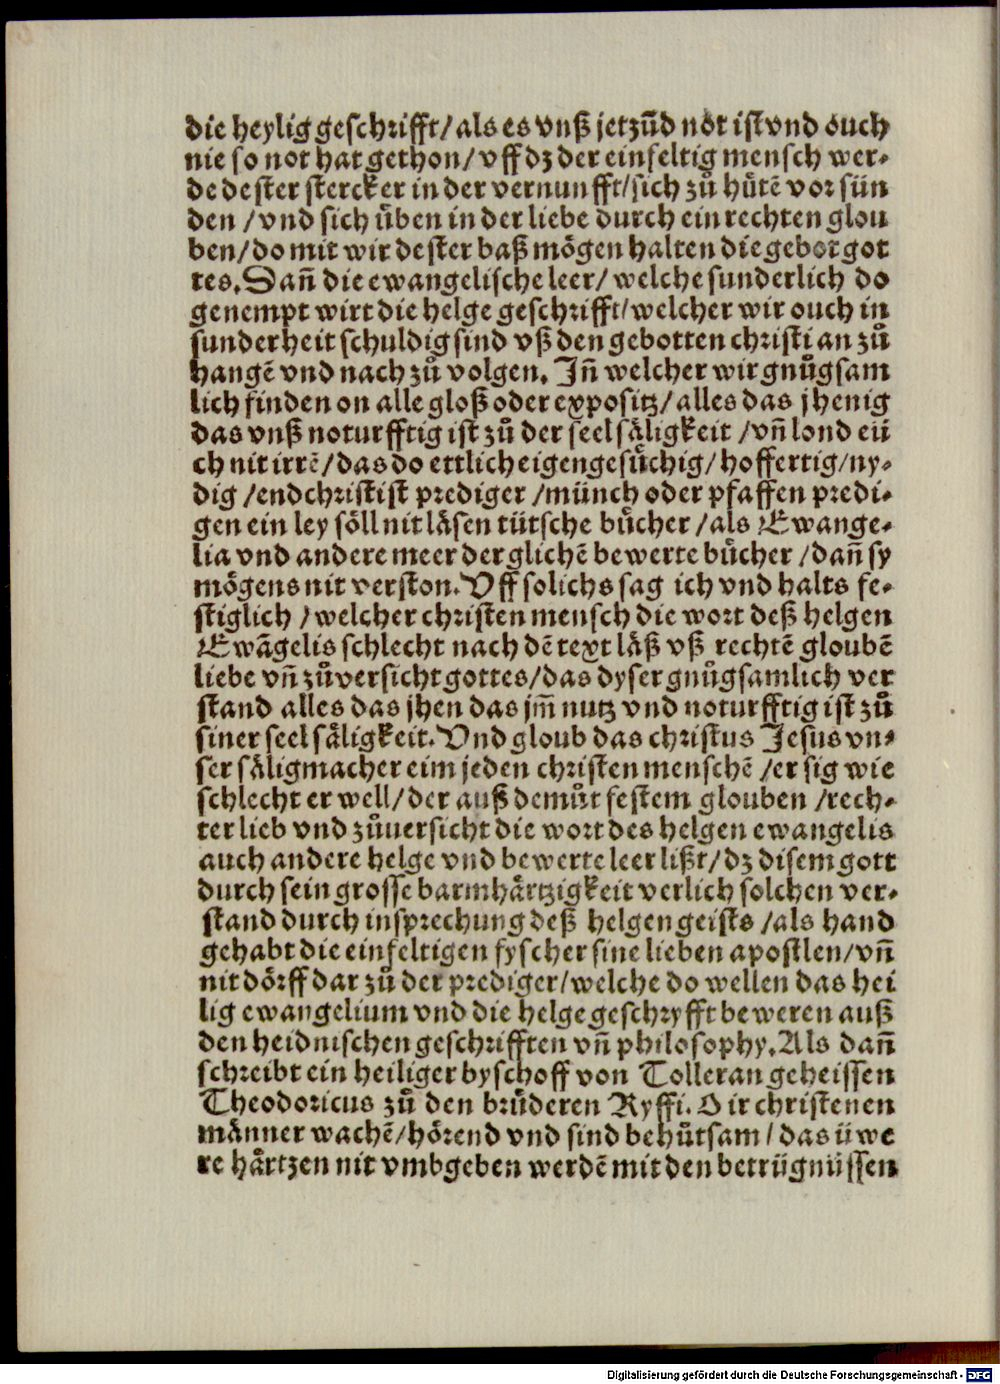 die heylig geschrifft/ als es vnß jetzūd not ist vnd ouch
nie so not hat gethon/ vff dz der einfeltig mensch wer⸗
de dester stercker in der vernunfft/ sich zů hütē vor sün
den / vnd sich üben in der liebe durch ein rechten glou
ben/ do mit wir dester baß mögen halten die gebot got
tes. Dañ die ewangelische leer/ welche sunderlich do
genempt wirt die helge geschrifft/ welcher wir ouch in
sunderheit schuldig sind vß den gebotten christi an zů
hangē vnd nach zů volgen. Jñ welcher wir gnůgsam
lich finden on alle gloß oder expositz/ alles das jhenig
das vnß noturfftig ist zů der seel säligkeit /vñ lond eü
ch nit irrē/ das do ettlich eigengesůchig/ hoffertig/ ny⸗
dig /endchristist prediger /münch oder pfaffen predi⸗
gen ein ley söll nit läsen tütsche bücher /als Ewange⸗
lia vnd andere meer der glichē bewerte bücher /dañ sy
mögens nit verston. Vff solichs sag ich vnd halts fe⸗
stiglich /welcher christen mensch die wort deß helgen
Ewāgelis schlecht nach dē text läß vß rechtē gloubē
liebe vñ zůversicht gottes/ das dyser gnůgsamlich ver
stand alles das jhen das jm̄ nutz vnd noturfftig ist zů
siner seel säligkeit. Vnd gloub das christus Jesus vn⸗
ser säligmacher eim jeden christen menschē /er sig wie
schlecht er well/ der auß demůt festem glouben /rech⸗
ter lieb vnd zůuersicht die wort des helgen ewangelis
auch andere helge vnd bewerte leer lißt/ dz disem gott
durch sein grosse barmhärtzigkeit verlich solchen ver⸗
stand durch insprechung deß helgen geists /als hand
gehabt die einfeltigen fyscher sine lieben apostlen/ vñ
nit dörff dar zů der prediger/ welche do wellen das hei
lig ewangelium vnd die helge geschryfft beweren auß
den heidnischen geschrifften vñ philosophy. Als dañ
schreibt ein heiliger byschoff von Tolleran geheissen
Theodoricus zů den brůderen Ryffi. O ir christenen
männer wachē/ hörend vnd sind behůtsam/ das üwe
re härtzen nit vmbgeben werdē mit den betrügnüssen
Digitalisierung gefördert durch die Deutsche Forschungsgemeinschaft - DFG